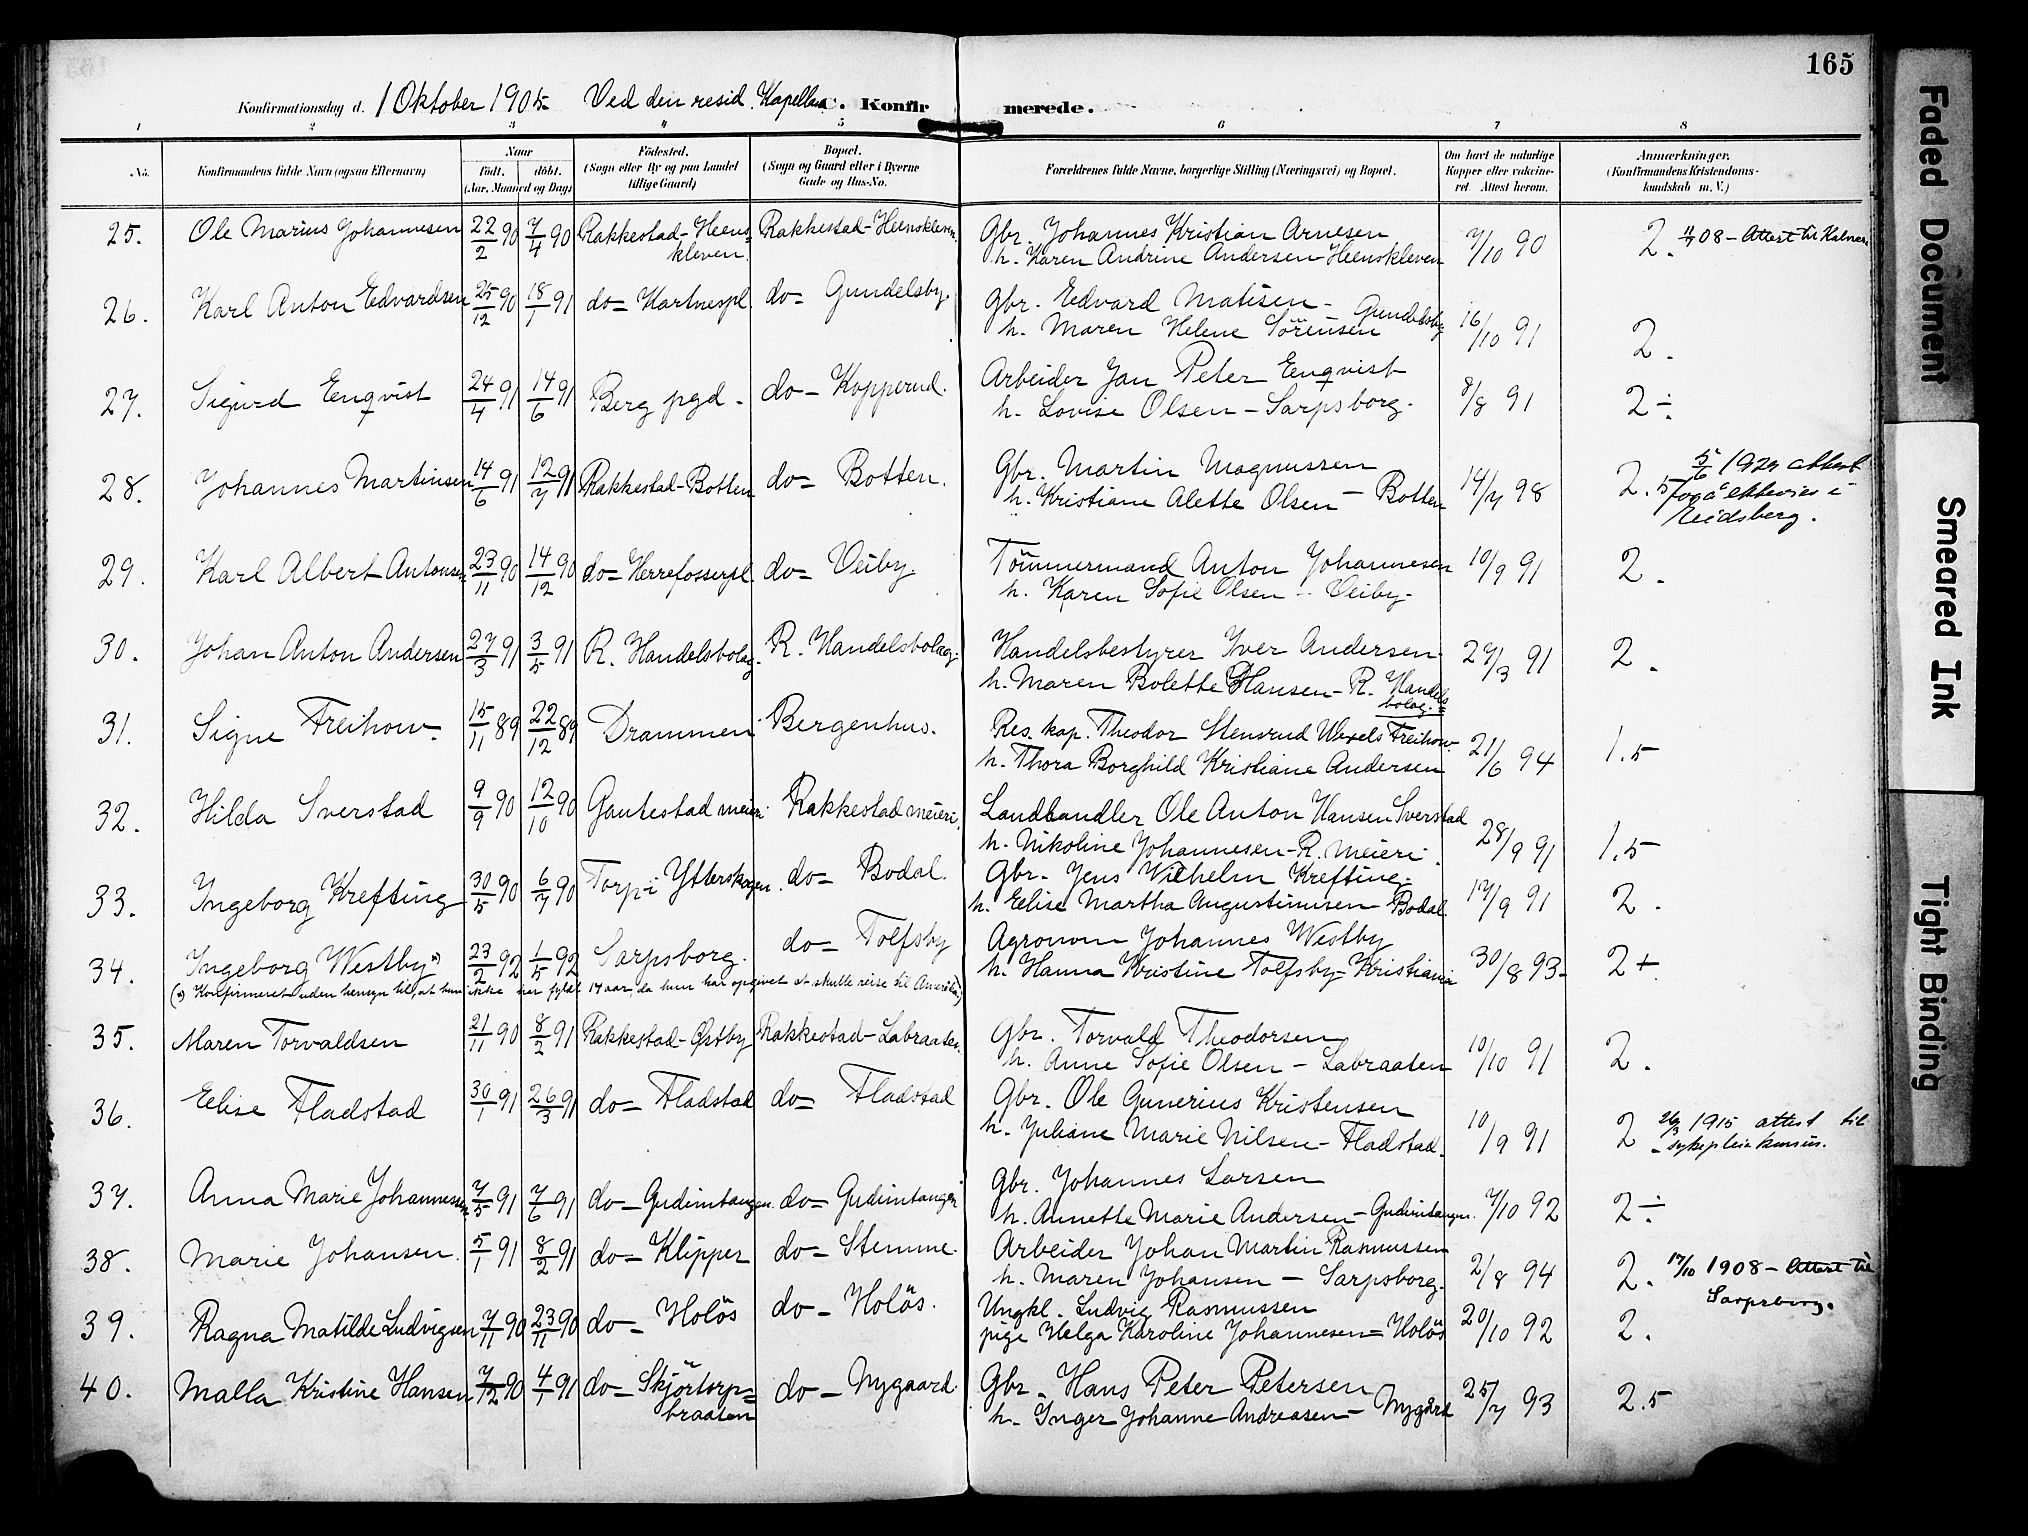 165
Konfirmationsdag d. 1 Oktober 1905 Ved den resid. Kapellan C. Konfirmerede.
1 2 3 4 5 6 7 8
No. Konfirmandens fulde Navn (ogsaa Efternavn) Naar Födt. döbt. (Aar, Maaned og Dag) Födested. (Sogn eller By og paa Landet tillige Gaard) Bopæl. (Sogn og Gaard eller i Byerne Gade og Hus-No. Forældrenes fulde Navne, borgerlige Stilling (Næringsvei) og Bopæl. Om havt de naturlige Kopper eller vakcineret. Attest herom. Anmærkninger. (Konfirmandens Kristendomskundskab m. V.)
25. Ole Marius Johannesen 22/2 90 7/4 90 Rakkestad-Heens= Rakkestad-Heenskleven. Gbr. Johannes Kristian Arnesen 7/10 90 2. 08 - Attest til Kalnes.
kleven. h. Karen Andrine Andersen-Heenskleven
26. Karl Anton Edvardsen 25/12 90 18/1 91 do= Kartnespl. do= Gundelsby. Gbr. Edvard Matisen - Gundelsby 16/10 91 2.
h. Maren Helene Sörensen
27. Sigurd Enqvist 24/4 91 14/6 91 Berg pgd. do- Kopperud. Arbeider Jan Peter Enqvist 8/8 91 2÷
h. Lovise Olsen - Sarpsborg.
28. Johannes Martinsen 14/6 91 12/7 91 Rakkestad-Botten do= Botten. Gbr. Martin Magnussen 14/7 98 2.5 5/6 1929 attest
h. Kristiane Alette Olsen - Botten for å ektevies i
Eidsberg.
29. Karl Albert Antonsen 23/11 90 14/12 90 do= Herrefosserpl do= Veiby. Tömmermand Anton Johannesen 10/9 91 2.
h. Karen Sofie Olsen - Veiby.
30. Johan Anton Andersen 27/3 91 3/5 91 R. Handelsbolag. R. Handelsbolag. Handelsbestyrer Iver Andersen 27/3 91 2.
h. Maren Bolette Hansen - R. Handels
bolag.=
31. Signe Freihow. 15/11 89 22/12 89 Drammen Bergenhus. Res. kap. Theodor Stensrud Wexels Freihow. 21/6 94 1.5
h. Thora Borghild Kristiane Andersen
32. Hilda Sverstad 9/9 90 12/10 90 Gautestad meieri. Rakkestad meieri. Landhandler Ole Anton Hansen Sverstad 28/9 91 1.5
h. Nikoline Johannesen-R. meieri.
33. Ingeborg Krefting 30/5 90 6/7 90 Torp i Ytterskogen. do= Bodal. Gbr. Jens Wilhelm Krefting. 17/9 91 2.
h. Elise Martha Augustinusen - Bodal.
34. Ingeborg Westby *) 23/2 92 1/5 92 Sarpsborg. do= Tolfsby Agronom Johannes Westby 30/8 93- 2+
h. Hanna Kristine Tolfsby-Kristiania
(*) Konfirmeret uden hensyn til, at hun ikke har fyldt 14 aar, da hun har opgivet at skulle reise til Amerika.)
35. Maren Torvaldsen 21/11 90 8/2 91 Rakkestad-Østby Rakkestad-Labraaten. Gbr. Torvald Theodorsen 10/10 91 2.
h. Anne Sofie Olsen - Labraaten
36. Elise Fladstad 30/1 91 26/3 91 do= Fladstad do= Fladstad Gbr. Ole Gunerius Kristensen 10/9 91 2 26/3 1915 attest til
h. Juliane Marie Nilsen - Fladstad. sykepleiekursus.
37. Anna Marie Johannessen 7/5 91 7/6 91 do- Gudimtangen. do= Gudimtangen Gbr. Johannes Larsen 7/10 92 2÷
h. Annette Marie Andersen - Gudimtangen.
38. Marie Johansen. 5/1 91 8/2 91 do= Klipper do= Stemme. Arbeider Johan Martin Rasmussen 2/8 94 2. 17/10 1908 - Attest til
h. Maren Johansen - Sarpsborg. Sarpsborg.
39. Ragna Matilde Ludvigsen 7/11 90 23/11 90 do= Holös do- Holös. Ungkl. Ludvig Rasmussen 20/10 92 2.
pige Helga Karoline Johannesen= Holös
40. Malla Kristine Hansen 7/12 90 4/1 91 do= Skjörtorp= do- Nygaard. Gbr. Hans Peter Petersen 25/7 93 2.5
braaten h. Inger Johanne Andreasen - Nygård
Faded Document
Smeared Ink
Tight Binding